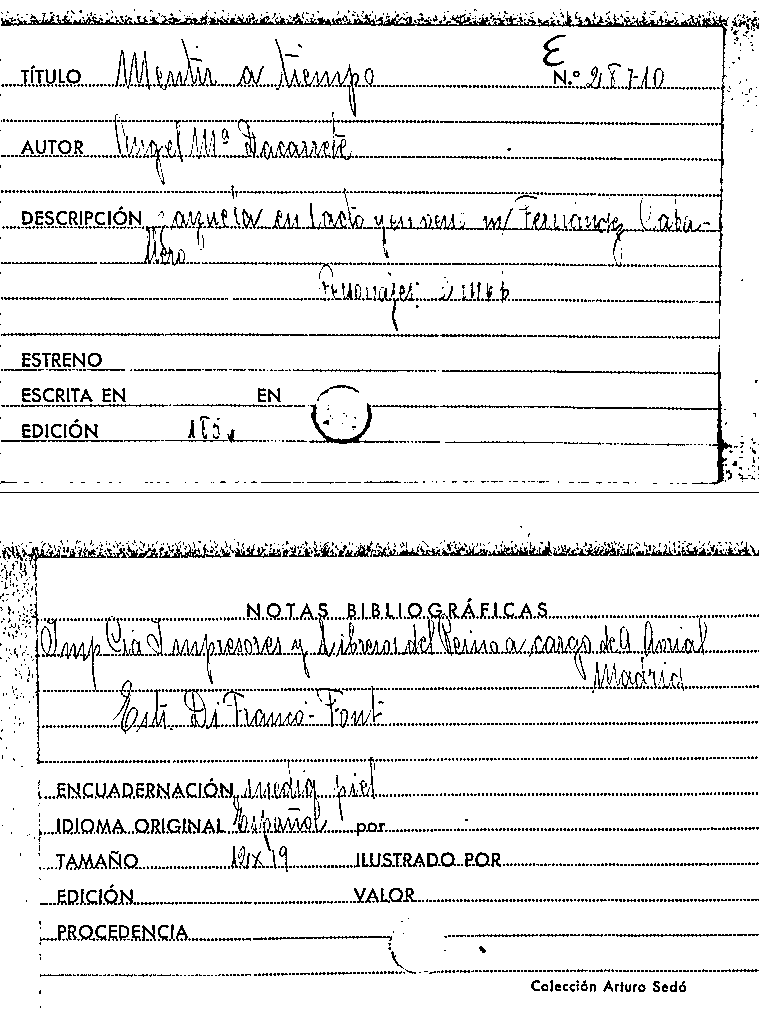 E
TÍTULO Mentir a tiempo N.º 287-10
AUTOR Angel Mª Dacarrete
DESCRIPCIÓN Zarzuela en 1 acto y en verso m/ Fernández Caba-
llero
Personajes:
ESTRENO
ESCRITA EN EN
EDICIÓN
NOTAS BIBLIOGRÁFICAS
Imp Cia Impresores y Libreros del Reino a cargo de A Avrial
Madrid
Edit. Di Franco-Font
ENCUADERNACIÓN media piel
IDIOMA ORIGINAL Español por
TAMAÑO 12x19 ILUSTRADO POR
EDICIÓN VALOR
PROCEDENCIA
Colección Arturo Sedó